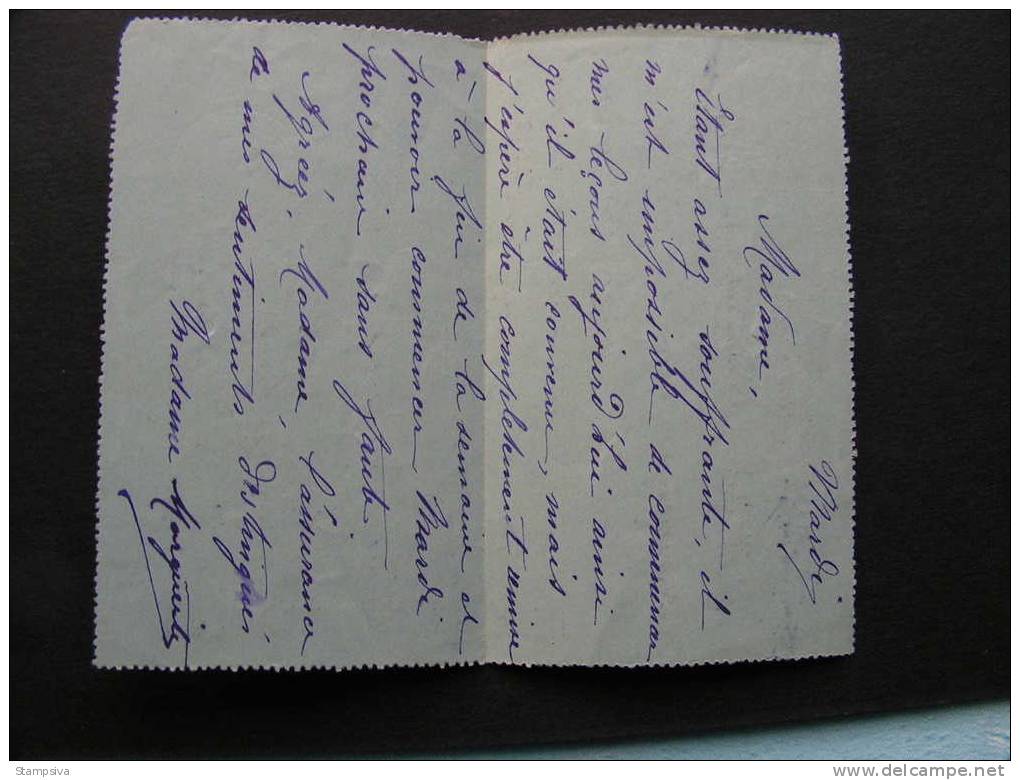 Mardi
Madame,
Étant assez souffrante, il
m'est impossible de commencer
mes leçons aujourd'hui ainsi
qu'il était convenu, mais
j'espère être complètement remise
à la fin de la semaine et
pouvoir commencer Mardi
prochain sans faute.
Agréez, Madame, l'assurance
de mes sentiments distingués
Madame
Stampsiva
www.delcampe.net